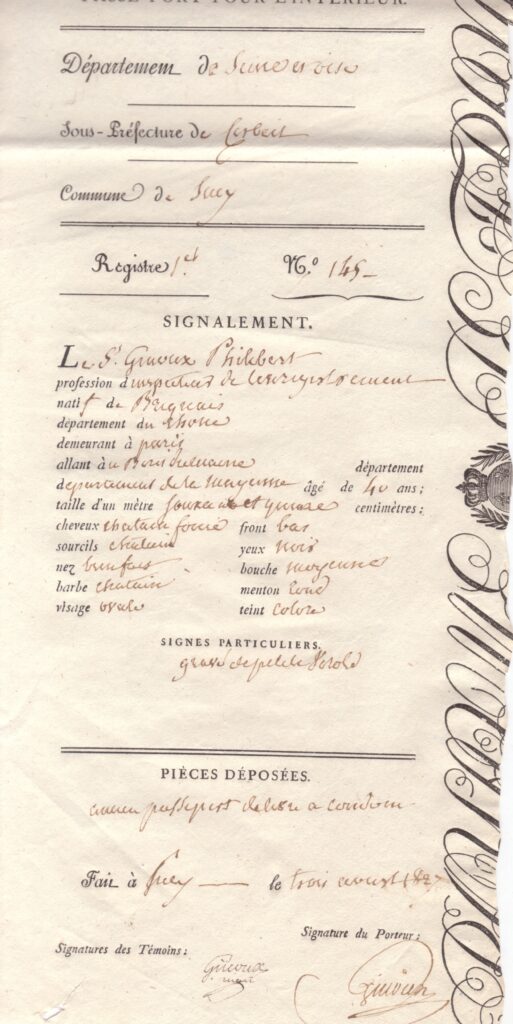 PASSE-PORT POUR L'INTÉRIEUR.
Département de Seine et oise
Sous-Préfecture de Corbeil
Commune de Sucy
Registre 1er N.o 145
SIGNALEMENT.
Le Sr. Giroux Philibert
profession d'inspecteur de l'enregistrement
natif de Brignais
département du rhone
demeurant à paris
allant à département
département de la mayenne âgé de 40 ans;
taille d'un mètre soixante et quinze centimètres:
cheveux chatain foncé front bas
sourcils chatain yeux noirs
nez bienfait bouche moyenne
barbe chatain menton rond
visage ovale teint coloré
SIGNES PARTICULIERS.
gravé de petite vérole
PIÈCES DÉPOSÉES.
ancien passeport délivré a condom
Fait à Sucy le trois aoust 182
Signature du Porteur:
Signatures des Témoins: